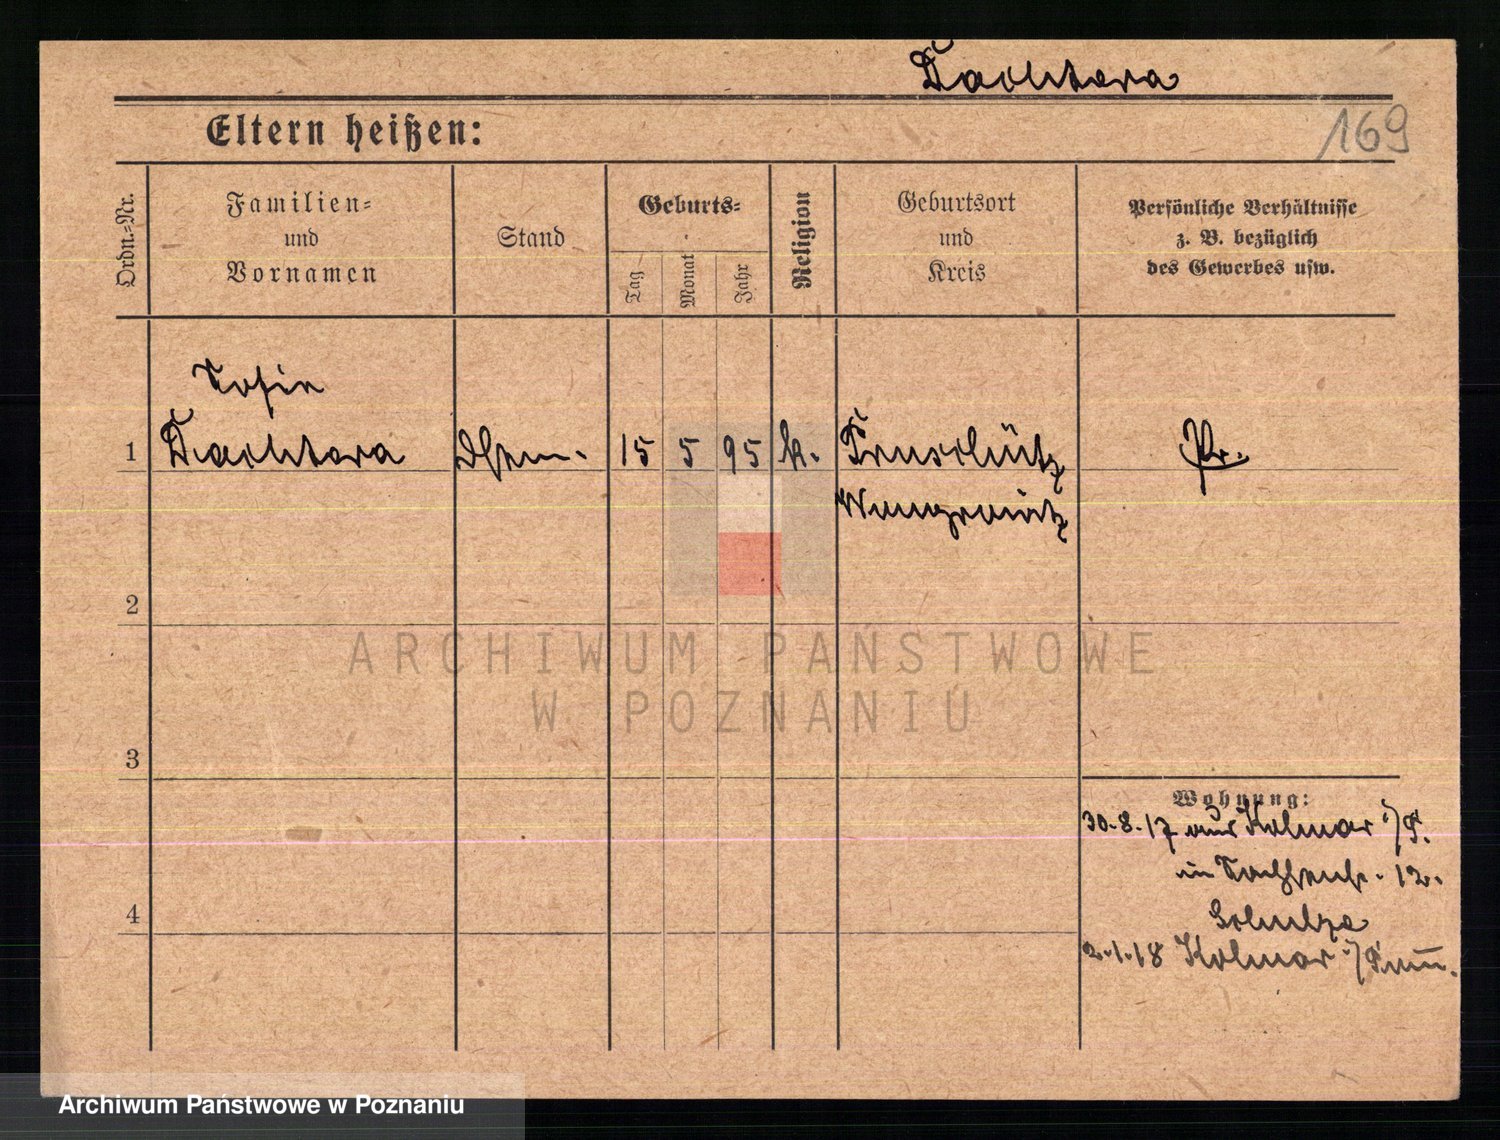 Dachtera
169
Eltern heißen:
Ordn.-Nr.
Familien-
und
Vornamen
Stand
Geburts-
Tag
Monat
Jahr
Religion
Geburtsort
und
Kreis
Persönliche Verhältnisse
z. B. bezüglich
des Gewerbes usw.
Sofie
1 Dachtera 15 5 95 k. Pr.
Wongrowitz
2
ARCHIWUM PAŃSTWOWE
W POZNANIU
3
Wohnung:
30.8.17 aus Kolmar i/P.
12.
Schulze
4
2.1.18 Kolmar i/Posen.
Archiwum Państwowe w Poznaniu